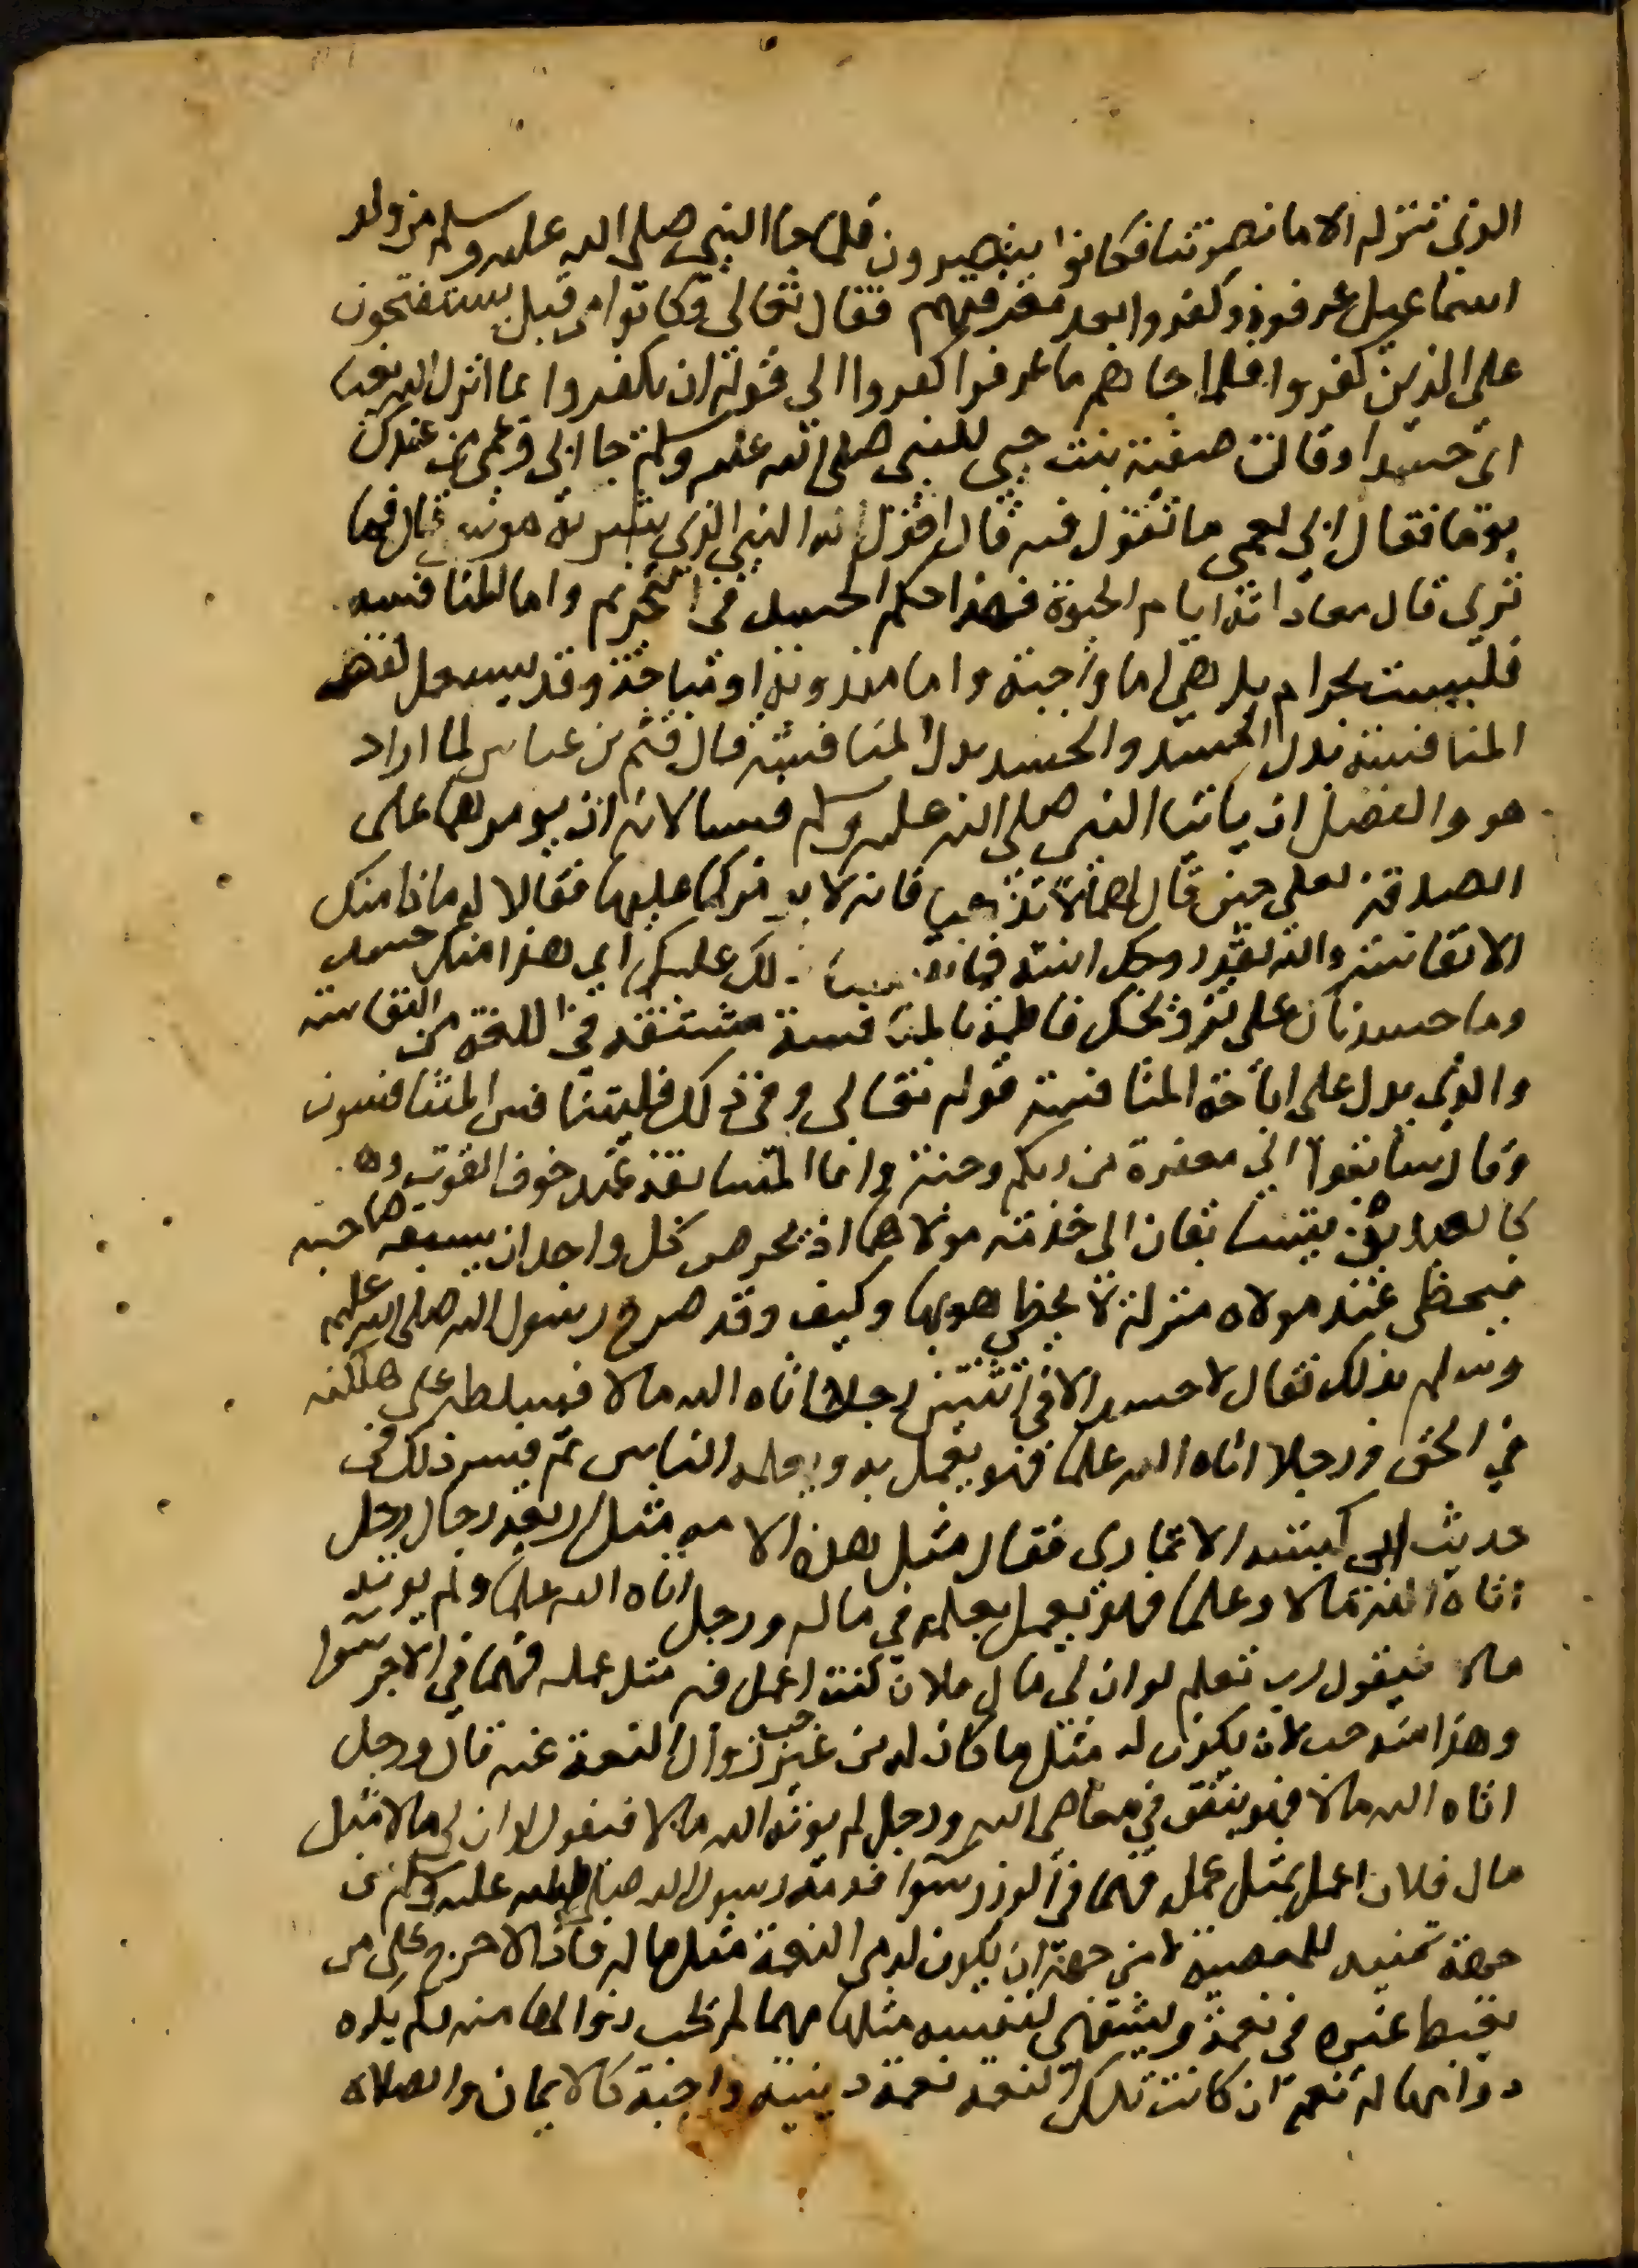 الذي تنزله الا ما نصرتنا فكانوا ينصرون فلما جا النبي صلى الله عليه وسلم من ولد
اسماعيل عرفوه وكفروا بعد معرفتهم فقال تعالى وكانوا من قبل يستفتحون
على الذين كفروا فلما جاهم ما عرفوا كفروا الى قوله ان يكفروا بما انزل الله بغيا
اي حسدا وقالت صفية بنت حيي للنبي صلى الله عليه وسلم جا ابي وعمي من عندك
يوما فقال ابي لعمي ما تقول فيه قال اقول انه النبي الذي بشر به موسى قال فما
ترى قال معاداته ايام الحيوة فهذا حكم الحسد في التحريم واما المنافسه
فليست بحرام بل هي اما واجبة واما مندوبة او مباحة وقد يستعمل لفظ
المنافسة بدل الحسد والحسد بدل المنافسة قال قثم بن عباس لما اراد
هو والفضل ان ياتيا النبي صلى الله عليه وسلم فيسالانه ان يومرهما على
الصدقة لعلي حين قال لهما لا تذهبا فانه لا يومركما عليها فقالا له ماذا منك
الا نفاسة والله لقد زوجك ابنته فما نفسنا ذلك عليك اي هذا منك حسد
وما حسدناك على تزويجك فاطمة فالمنافسة مشتقة في اللغة من النفاسة
والذي يدل على اباحة المنافسة قوله تعالى وفي ذلك فليتنافس المتنافسون
وقال سابقوا الى مغفرة من ربكم وجنة وانما المسابقة عند خوف الفوت وهو
كالعبدين يتسابقان الى خدمة مولاهما اذ يحرص كل واحد ان يسبقه صاحبه
فيحظى عند مولاه منزلة لا يحظى هو بها وكيف وقد صرح رسول الله صلى الله عليه
وسلم بذلك فقال لا حسد الا في اثنتين رجلا اتاه الله مالا فسلطه على هلكته
في الحق ورجلا اتاه الله علما فهو يعمل به ويعلمه الناس ثم فسر ذلك في
حديث ابي كبشه الانماري فقال مثل هذه الامه مثل اربعة رجال رجل
اتاه الله مالا وعلما فهو يعمل بعلمه في ماله ورجل اتاه الله علما ولم يوته
مالا فيقول رب تعلم لو ان لي مال فلان كنت اعمل فيه مثل عمله فهما في الاجر سوا
وهذا منه حب لان يكون له مثل ما كان له من غير حب زوال النعمة عنه قال ورجل
اتاه الله مالا فهو ينفق في معاصي الله ورجل لم يوته الله مالا فيقول لو ان لي مالا مثل
مال فلان اعمل بمثل عمله فهما في الوزر سوا فذمه رسول الله صلى الله عليه وسلم من
جهة تمنيه للمعصية لا من جهة ان يكون له من النعمة مثل ما له فاذا لا حرج على من
يغبط غيره في نعمة ويشتهي لنفسه مثلها مهما لم يحب زوالها منه ولم يكره
دوامها له نعم ان كانت تلك النعمه نعمة دينية واجبة كالايمان والصلاه